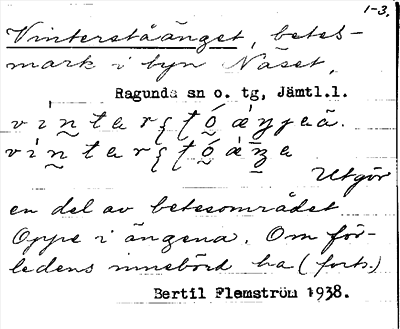 1-3.
Vinterståänget, betes-
mark i byn Näset,
Ragunda sn o. tg, Jämtl.l.
Utgör
en del av betesområdet
Oppe i ängena. Om för-
ledens innebörd ha (forts.)
Bertil Flemström 1938.